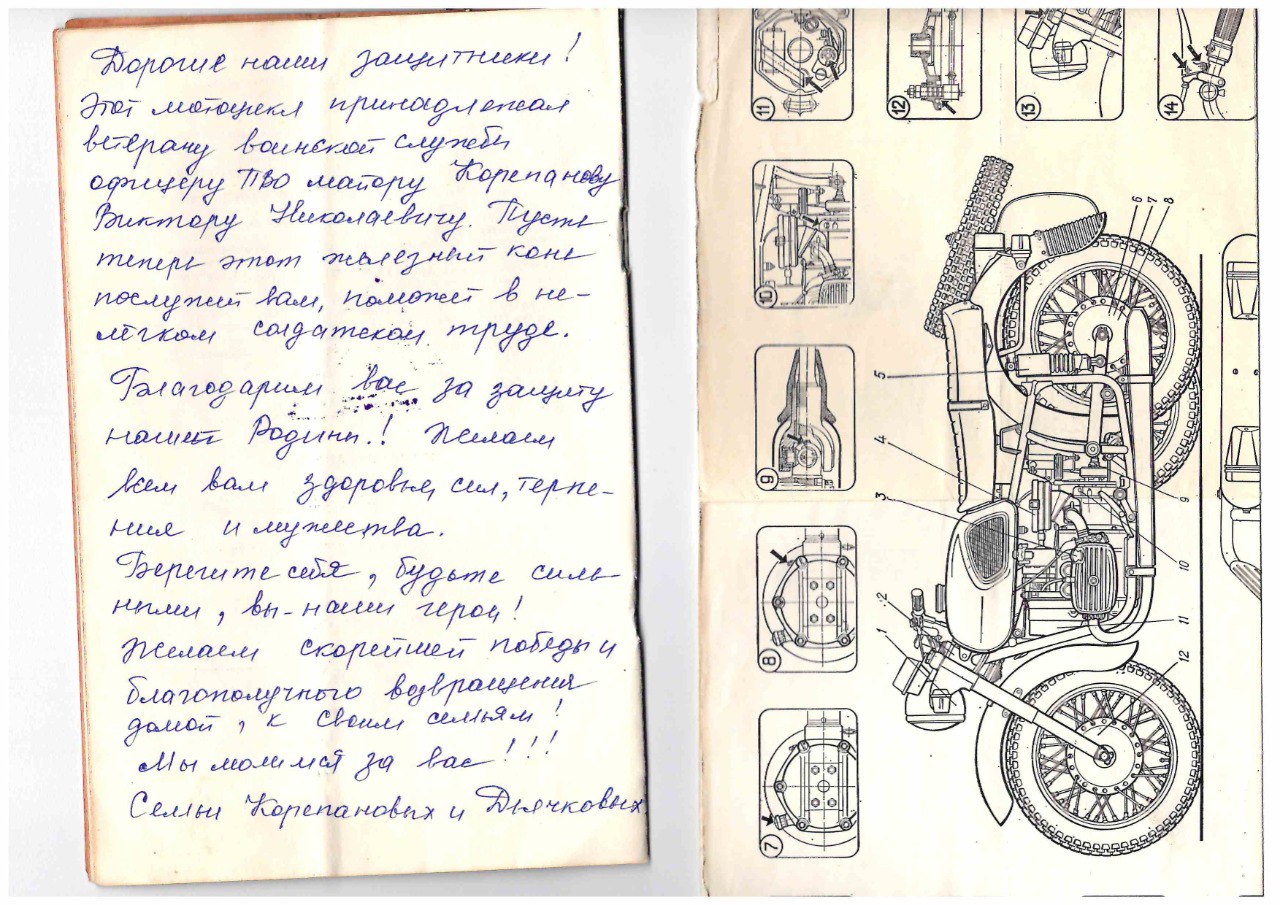 Дорогие наши защитники!
Этот мотоцикл принадлежал
ветерану воинской службы
офицеру ПВО майору Корепанову
Виктору Николаевичу. Пусть
теперь этот железный конь
послужит вам, поможет в не-
лёгком солдатском труде.
Благодарим вас за защиту
нашей Родины.! Желаем
всем вам здоровья, сил, терпе-
ния и мужества.
Берегите себя, будьте силь-
ными, вы-наши герои!
Желаем скорейшей победы и
благополучного возвращения
домой, к своим семьям!
Мы молимся за вас!!!
Семьи Корепановых и Дьячковых.
11
12
13
14
10
9
8
7
6
7
8
5
4
3
2
1
9
10
11
12